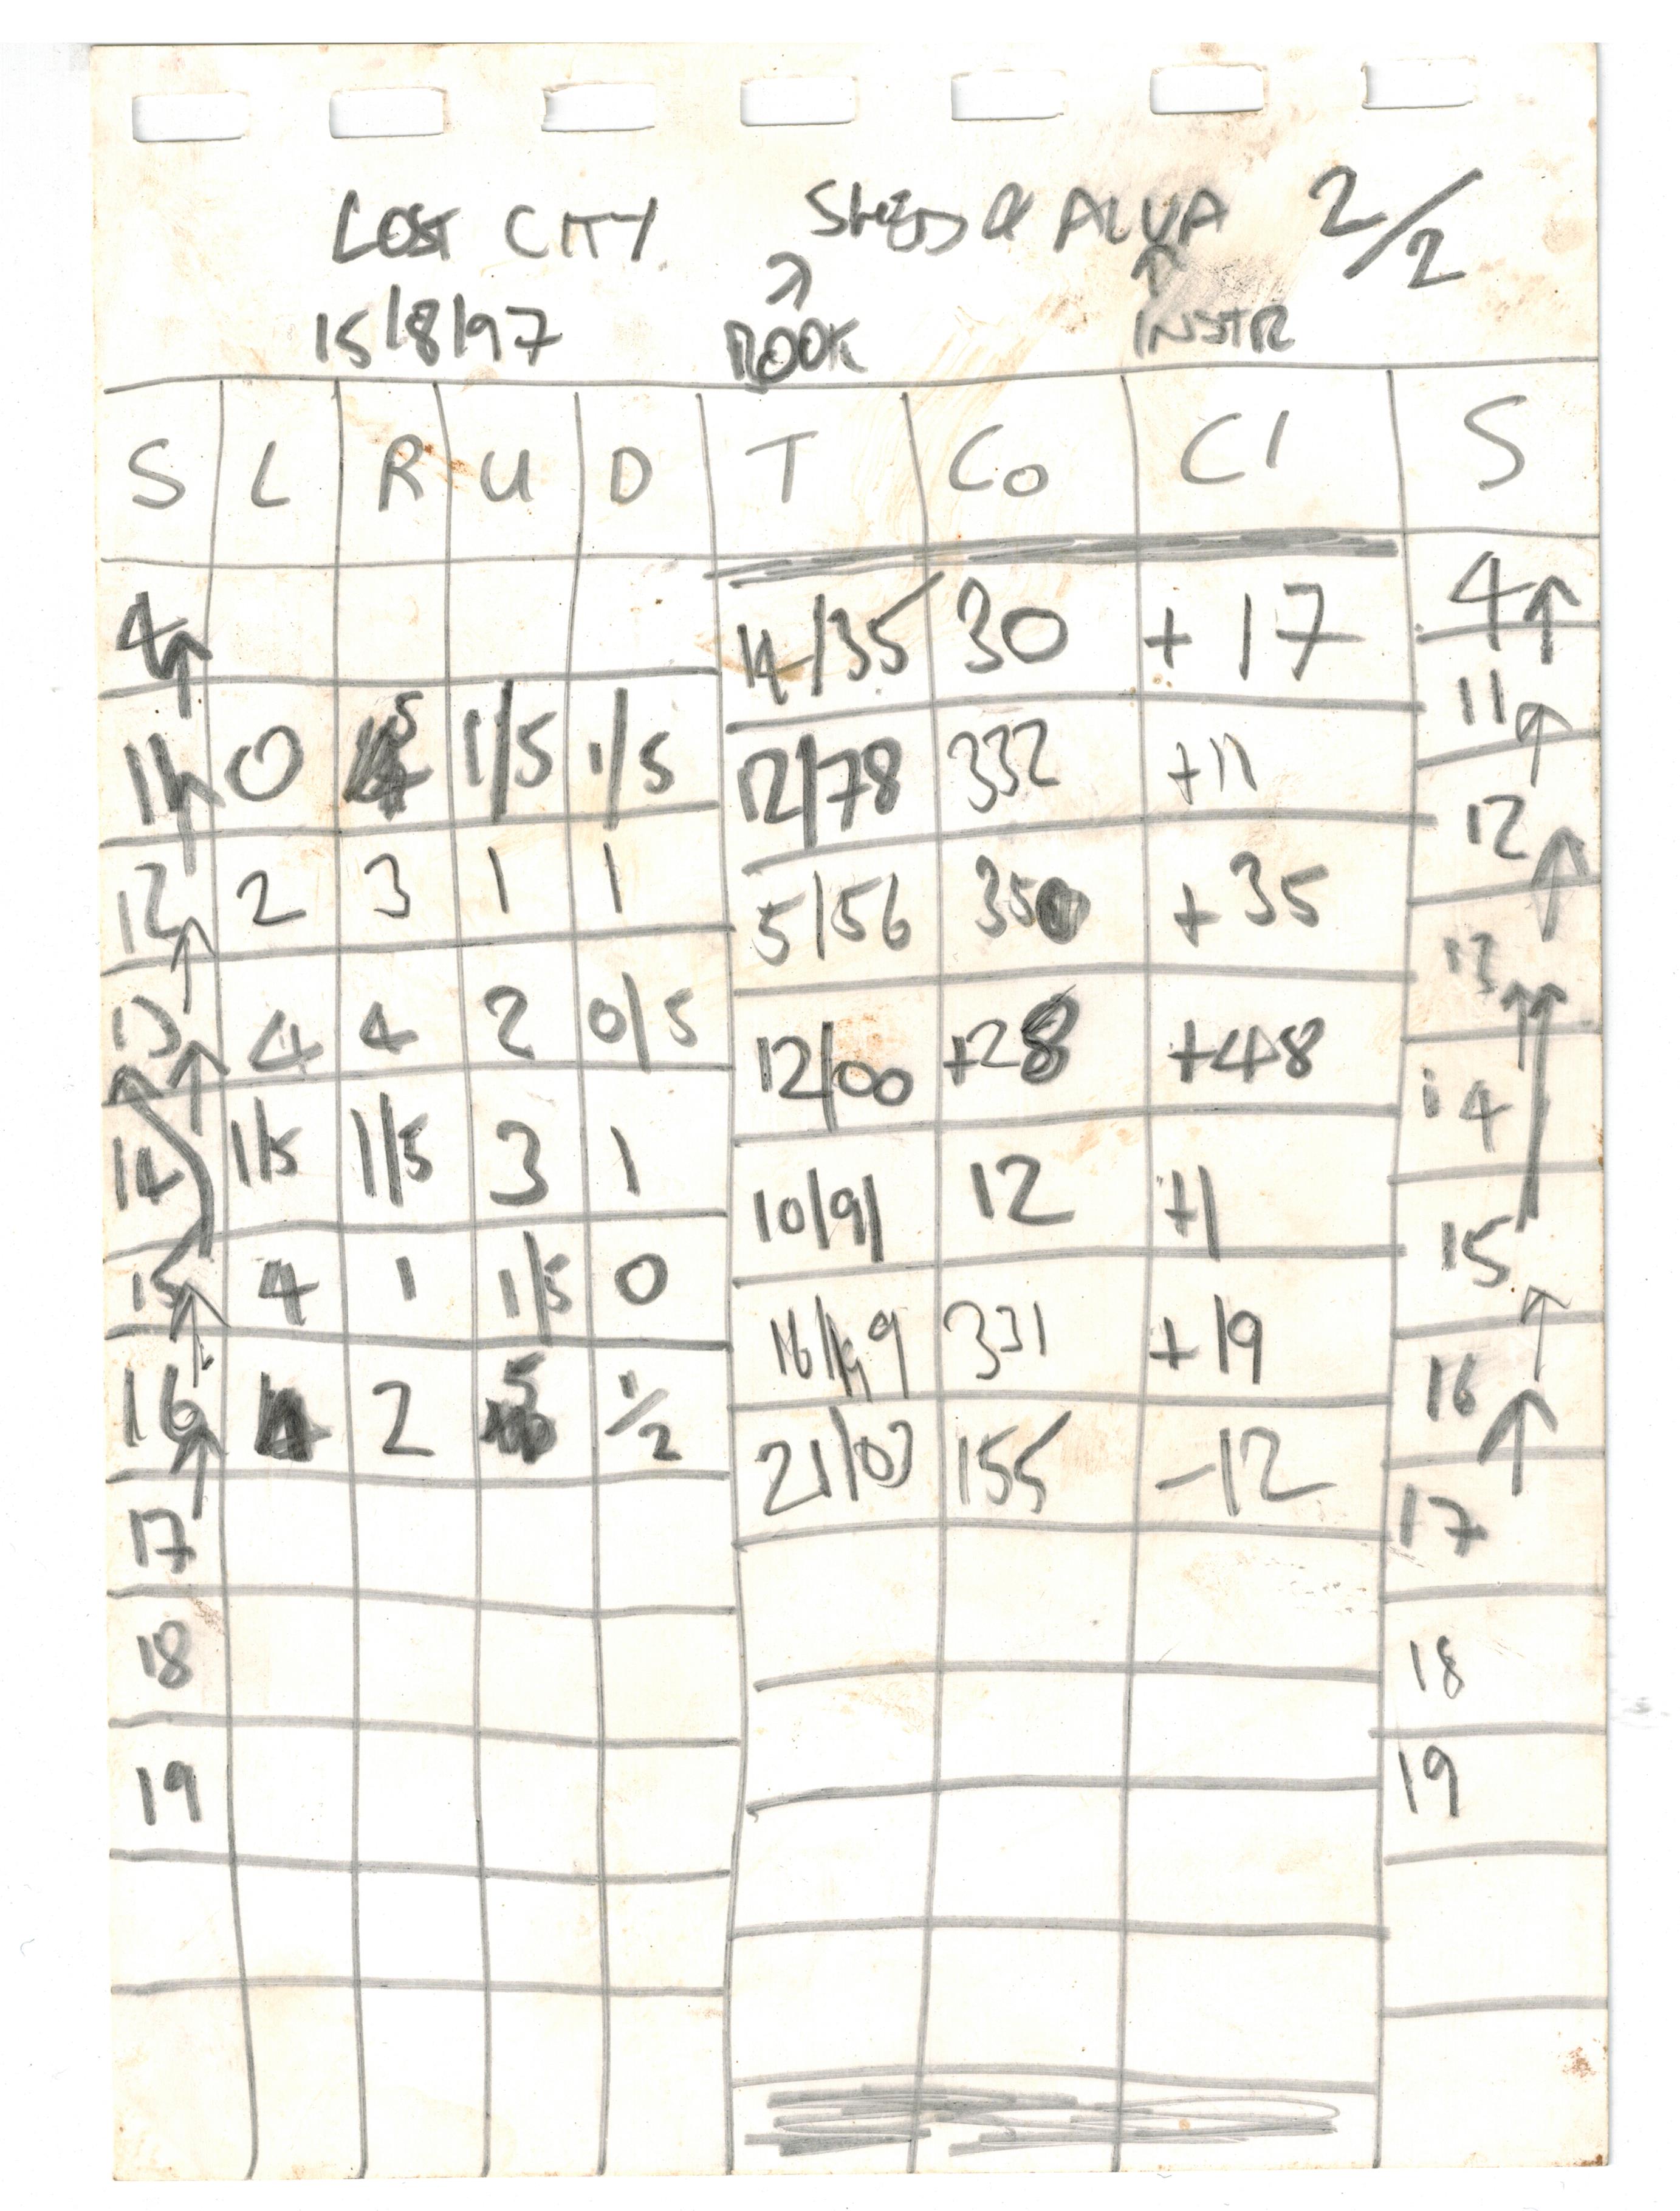 LOST CITY & ALVA 2/2
15/8/97 BOOK INSTR
S L R U D T Co Cl S
4 14/35 30 + 17 4
11 0 5 1/5 1/5 12/78 332 +11 11
12 2 3 1 1 5/56 350 + 35 12
13 4 4 2 0/5 12/00 +28 +48 13
14 1/5 1/5 3 1 10/91 12 +1 14
15 4 1 1/5 0 331 +19 15
16 4 2 5 1/2 21/03 155 -12 16
17 17
18 18
19 19